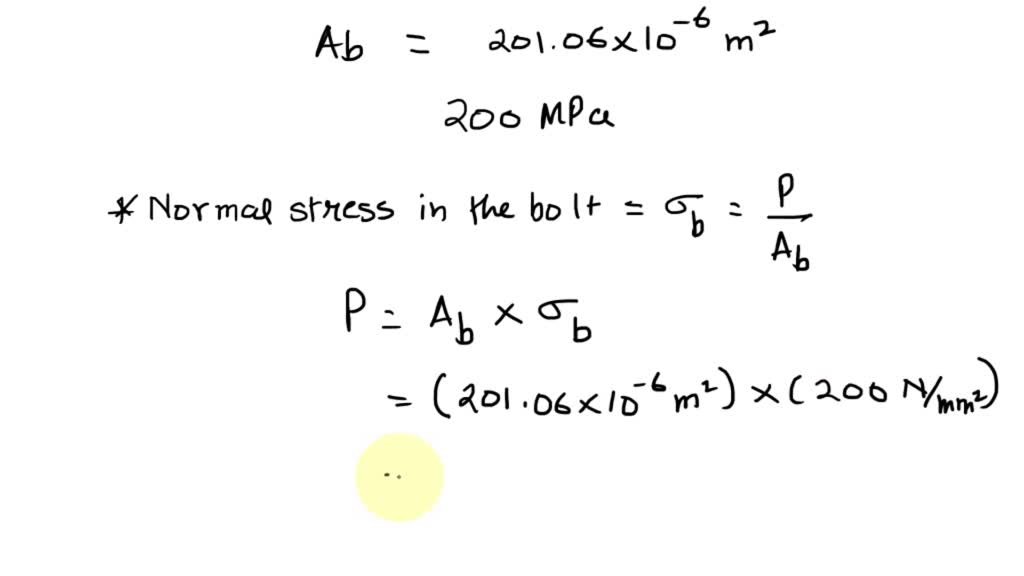 Ab = 201.06×10⁻⁶ m²
200 MPa
* Normal stress in the bolt = σb = P/Ab
P = Ab × σb
= (201.06×10⁻⁶ m²) × (200 N/mm²)